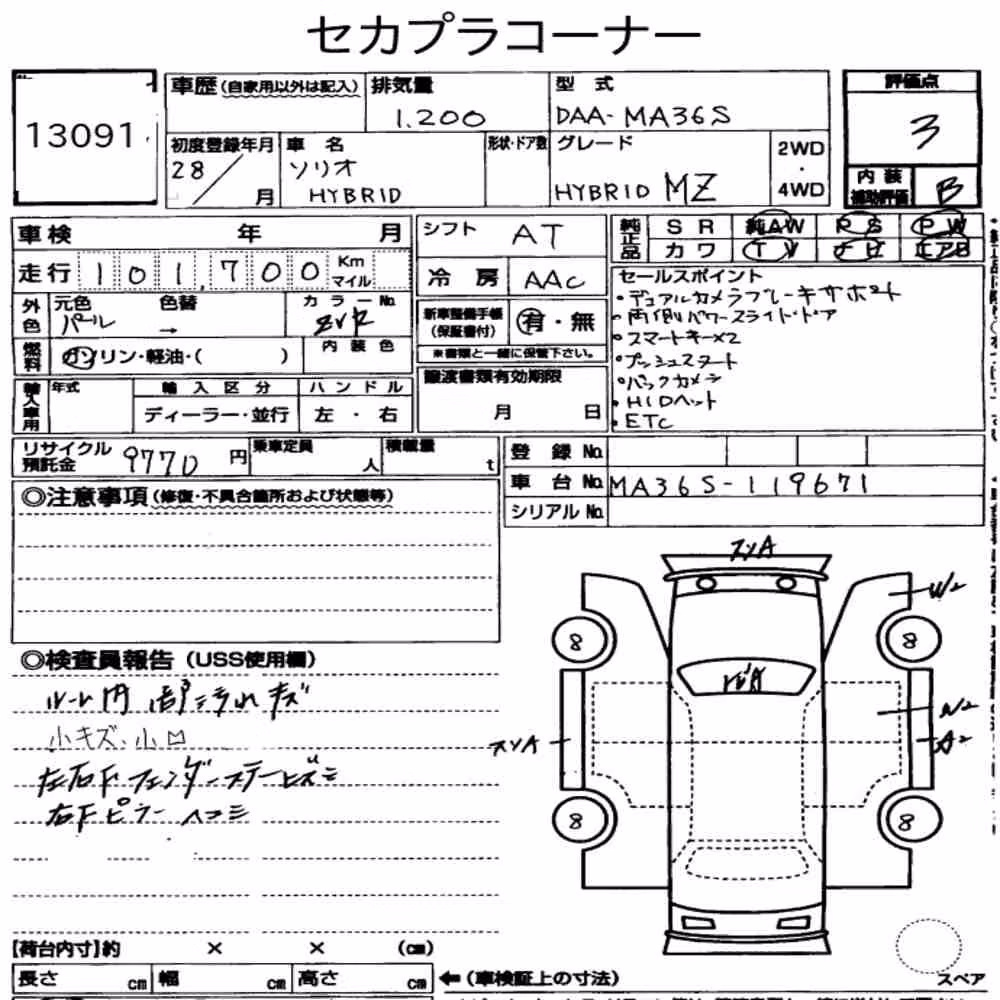 セカプラコーナー
13091
車歴(自家用以外は記入)
排気量
1.200
型 式
DAA-MA36S
評価点
3
内装
補助評価
B
初度登録年月
28
月
車 名
ソリオ
HYBRID
形状・ドア数
グレード
HYBRID MZ
2WD
・
4WD
車検 年 月
走行 101,700
Km
マイル
シフト AT
冷 房 AAC
純正品
SR 純AW PS PW
カワ TV ナビ エアB
外色
元色 色替
パール →
カラーNo
ZVR
燃料
ガソリン・軽油・( )
内 装 色
新車整備手帳
(保証書付)
有・無
※書類と一緒に保管下さい。
セールスポイント
・デュアルカメラブレーキサポート
・両側パワースライドドア
・スマートキー×2
・プッシュスタート
・バックカメラ
・HIDヘッド
・ETC
輸入車用
年式
輸 入 区 分
ディーラー・並行
ハ ン ド ル
左 ・ 右
譲渡書類有効期限
月 日
リサイクル
預託金
9770 円
乗車定員
人
積載量
t
登 録 No.
車 台 No. MA36S-119671
シリアル No.
◎注意事項(修復・不具合箇所および状態等)
◎検査員報告(USS使用欄)
ルーム内 部 汚れ キズ
小キズ、小凹
左右Fフェンダーステーヒズミ
右Fピラー ヘコミ
スリA
W2
8
8
トビA
W2
スリA
A2
8
8
【荷台内寸】約 × × (cm)
長さ cm
幅 cm
高さ cm
←(車検証上の寸法)
スペア